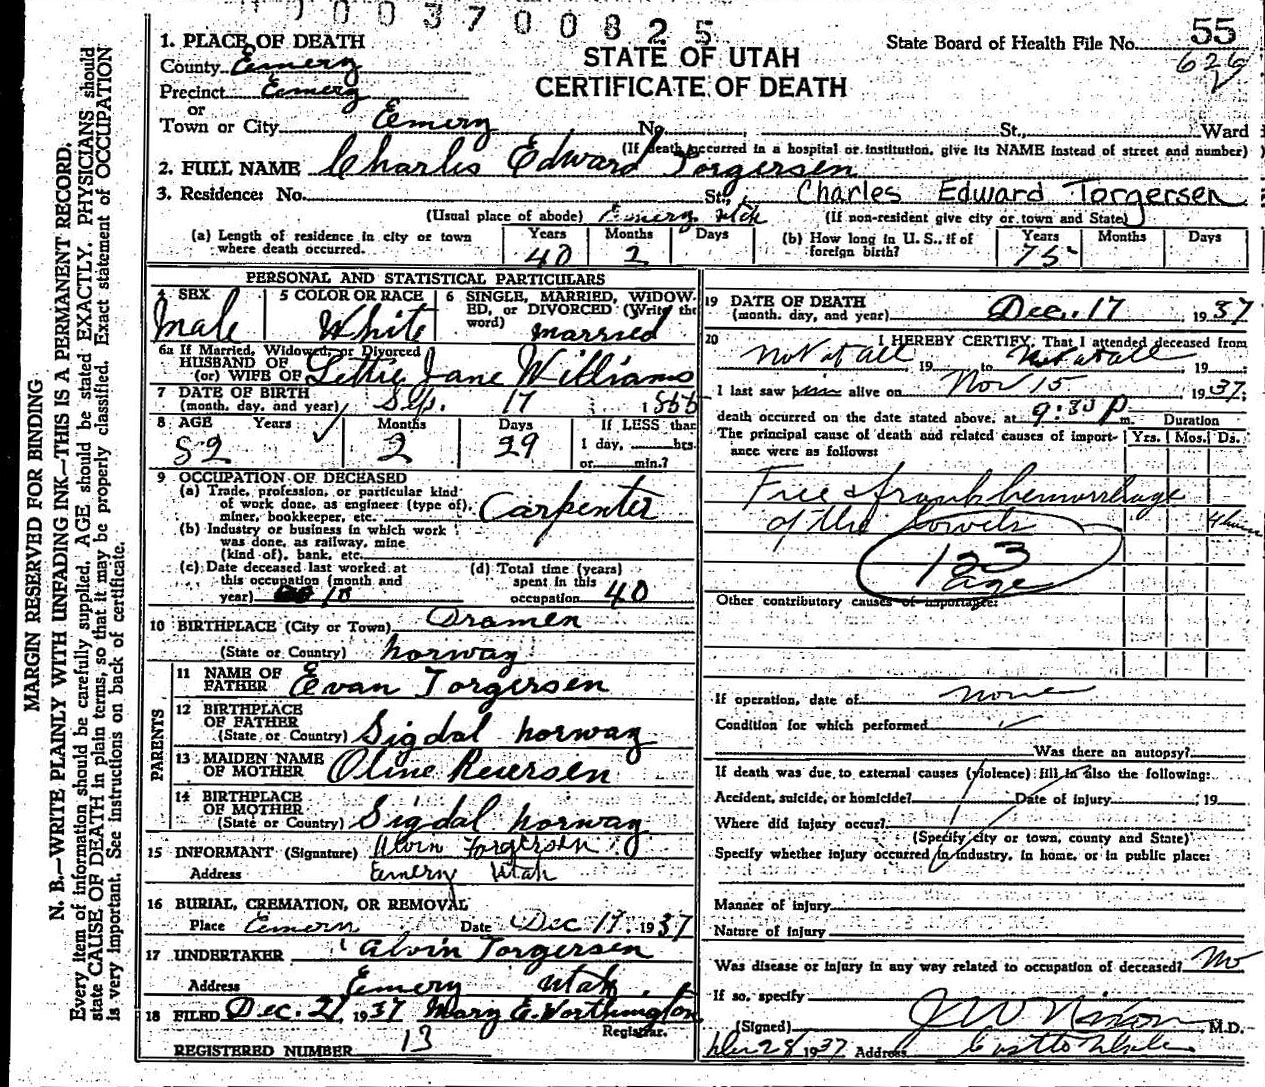 1 0 0 3 7 0 0 8 2 5
1. PLACE OF DEATH
County Emery
Precinct Emery
or
Town or City Emery No. St., Ward
STATE OF UTAH
CERTIFICATE OF DEATH
State Board of Health File No. 55
626
(If death occurred in a hospital or institution, give its NAME instead of street and number)
2. FULL NAME Charles Edward Torgersen
3. Residence: No. St., Charles Edward Torgersen
(Usual place of abode) Emery, Utah (If non-resident give city or town and State)
(a) Length of residence in city or town where death occurred. Years 40 Months 2 Days
(b) How long in U. S., if of foreign birth? Years 75 Months Days
PERSONAL AND STATISTICAL PARTICULARS
4 SEX Male
5 COLOR OR RACE White
6 SINGLE, MARRIED, WIDOWED, or DIVORCED (Write the word) married
6a If Married, Widowed, or Divorced
HUSBAND OF
(or) WIFE OF Lettie Jane Williams
7 DATE OF BIRTH
(month, day, and year) Sep. 17 1855
8 AGE Years 82 Months 2 Days 29 If LESS than
1 day, hrs.
or min.?
9 OCCUPATION OF DECEASED
(a) Trade, profession, or particular kind
of work done, as engineer (type of),
miner, bookkeeper, etc. Carpenter
(b) Industry or business in which work
was done, as railway, mine
(kind of), bank, etc.
(c) Date deceased last worked at
this occupation (month and
year)
(d) Total time (years)
spent in this
occupation 40
10 BIRTHPLACE (City or Town) Dramen
(State or Country) norway
PARENTS
11 NAME OF
FATHER Evan Torgersen
12 BIRTHPLACE
OF FATHER
(State or Country) Sigdal norway
13 MAIDEN NAME
OF MOTHER Oline Reversen
14 BIRTHPLACE
OF MOTHER
(State or Country) Sigdal norway
15 INFORMANT (Signature) Alvin Torgersen
Address Emery Utah
16 BURIAL, CREMATION, OR REMOVAL
Place Emery Date Dec 19 1937
17 UNDERTAKER Alvin Torgersen
Address Emery Utah.
18 FILED Dec. 21, 1937 Mary E. Worthington
Registrar.
REGISTERED NUMBER 13
19 DATE OF DEATH
(month, day, and year) Dec. 17, 1937
20 I HEREBY CERTIFY, That I attended deceased from
Not at all, 19 to Not at all, 19
I last saw him alive on Nov 15 1937;
death occurred on the date stated above, at 9:30 P m. Duration
The principal cause of death and related causes of importance were as follows: Yrs. Mos. Ds.
Free & frank hemorrhage
of the bowels 4 hours
123
age
Other contributory causes of importance:
If operation, date of none
Condition for which performed
Was there an autopsy?
If death was due to external causes (violence) fill in also the following:
Accident, suicide, or homicide? Date of injury , 19
Where did injury occur?
(Specify city or town, county and State)
Specify whether injury occurred in industry, in home, or in public place:
Manner of injury
Nature of injury
Was disease or injury in any way related to occupation of deceased? No
If so, specify
(Signed) J W Nixon, M.D.
Dec 28 1937 Address Castle Dale
MARGIN RESERVED FOR BINDING
N. B.—WRITE PLAINLY WITH UNFADING INK—THIS IS A PERMANENT RECORD.
Every item of information should be carefully supplied. AGE should be stated EXACTLY. PHYSICIANS should
state CAUSE OF DEATH in plain terms, so that it may be properly classified. Exact statement of OCCUPATION
is very important. See instructions on back of certificate.